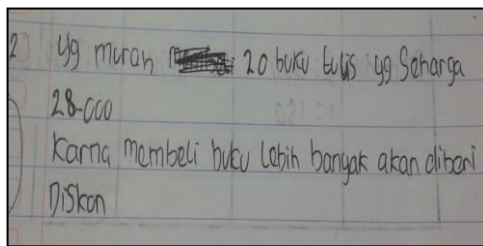 2 yg murah 20 buku tulis yg Seharga
28.000
Karna membeli buku lebih banyak akan diberi
Diskon